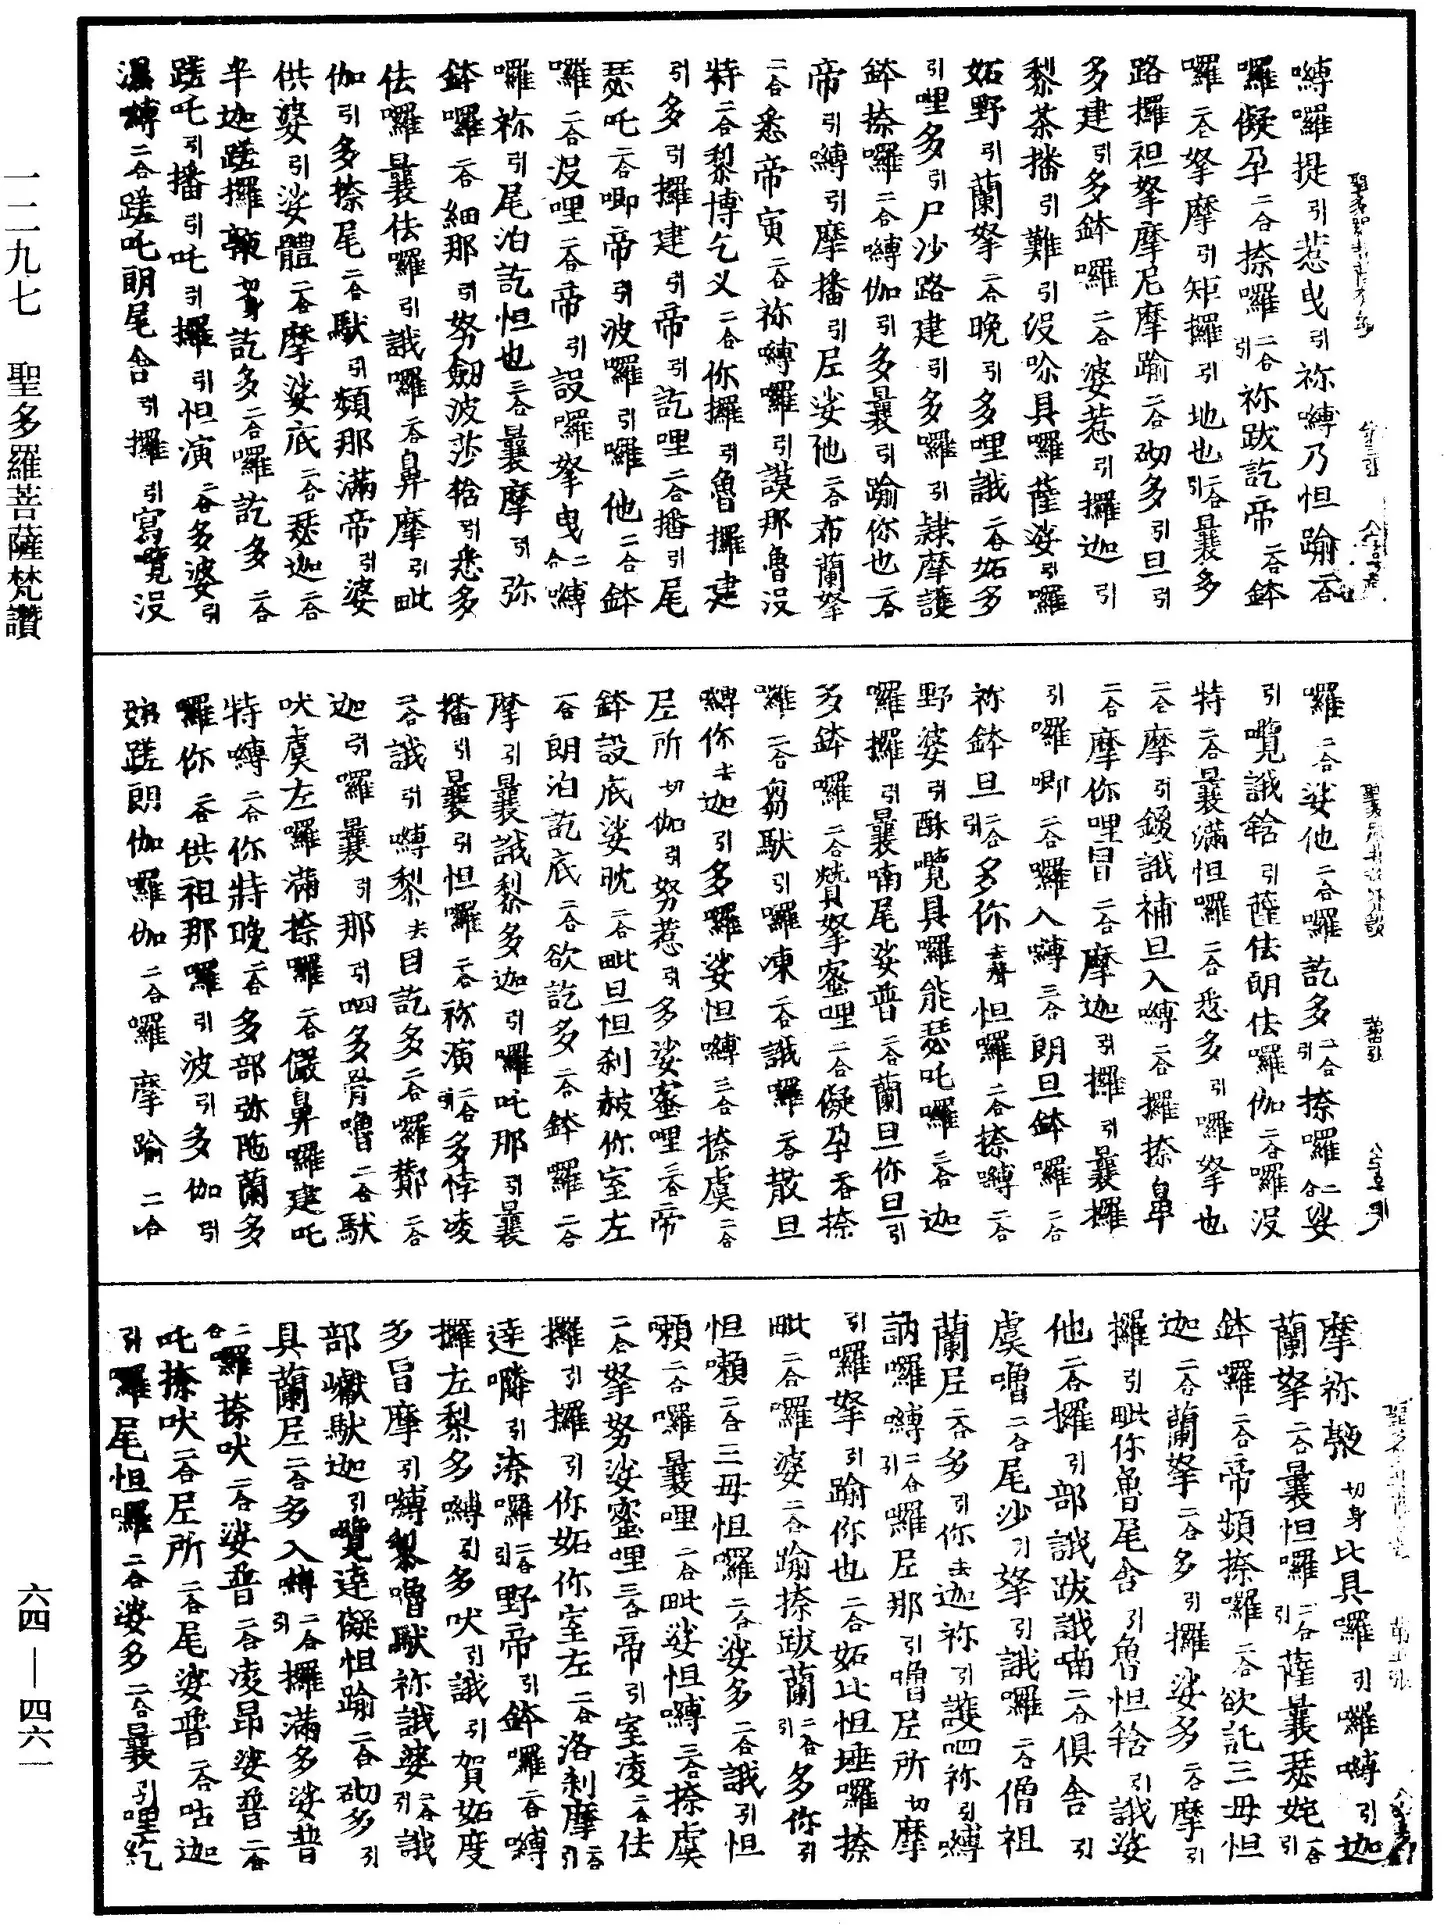 嚩囉提引惹曳引祢嚩乃怛踰二合
羅儗孕二合捺囉二合引祢跋訖帝二合鉢
囉二合拏摩引矩攞引地也二合引曩多
路攞祖拏摩尼摩踰二合砌多引旦引
多建引多鉢囉二合婆惹引攞迦引
黎茶播引難引没唥具囉薩娑引囉
妬野引蘭拏二合晚引多哩誐二合妬多
引哩多引尸沙路建引多囉引隷摩護
鉢捺囉二合嚩伽引多曩引踰你也二合
帝引嚩引摩播引𠯆娑他二合布蘭拏
二合悉帝寅二合祢嚩囉引謨那魯没
特二合黎博乞叉二合你攞引魯攞建
引多引攞建引帝引訖哩二合播引尾
瑟吒二合唧帝引波囉引囉他二合鉢
囉二合没哩二合帝引設囉拏曳二合嚩
囉祢引尾泊訖怛也三合曩摩引弥
鉢囉二合細那引努劒波莎犖引悉多
佉囉曩佉囉引誐囉二合鼻摩引毗
伽引多捺尾二合馱引頻那滿帝引婆
供婆引娑體二合摩娑底二合瑟迦二合
半迦蹉攞𩋘切身訖多二合囉訖多二合
蹉吒引播引吒引攞引怛演二合多婆引
濕嚩二合蹉吒朗尾舍引攞引寫覽没
囉二合娑他二合囉訖多二合引捺囉二合娑
引覽誐犖引薩佉朗佉囉伽二合囉没
特二合曩滿怛囉二合悉多引囉拏也
二合摩引鍐誐補旦入嚩二合攞捺鼻
二合摩你哩冒二合摩迦引攞引曩攞
引囉唧二合囉入嚩三合朗旦鉢囉二合
祢鉢旦二合引多你去聲怛囉二合捺嚩二合
野婆引酥覽具囉能瑟吒囉三合迦
囉攞引曩喃尾娑普二合蘭旦你旦引
多鉢囉二合㸇拏蜜哩二合儗孕二合捺
囉二合芻馱引囉凍二合誐囉二合散旦
嚩你去迦引多囉娑怛嚩三合捺虞二合
𠯆所切伽引努惹引多娑蜜哩三合帝
鉢設底娑眈二合毗旦怛刹赦你室左
二合朗泊訖底二合欲訖多二合鉢囉二合
摩引曩誐黎多迦引囉吒那引曩
播引曩引怛囉二合祢演二合引多悖凌
二合誐引嚩黎去目訖多二合囉鄼二合
迦引囉曩引那引呬多骨嚕二合馱
吠虞左囉滿捺囉二合儼鼻囉建吒
特嚩二合你特晚二合多部弥陁蘭多
囉你二合供祖那囉引波引多伽引
妳蹉朗伽囉伽二合囉摩踰二合
摩祢𨂂切身比具囉引囉嚩引迦
蘭拏二合曩怛囉二合引薩曩瑟姹二合引
鉢囉二合帝頻捺囉二合欲訖三毋怛
迦二合蘭拏二合多引攞娑多二合摩引
攞引毗你魯尾舍引魯怛犖引誐娑
他二合攞引部誐跋誐喃二合俱舍引
虞嚕二合尾沙引拏引誐囉二合僧祖
蘭𠯆二合多引你去迦祢引護呬祢引嚩
訥囉嚩二合引囉𠯆那引嚕𠯆所切摩
引囉拏引踰你也二合妬比怛埵囉捺
毗二合囉婆二合踰捺跋蘭二合引多你引
怛嚩二合三毋怛囉二合娑多二合誐引怛
嚩二合囉曩哩二合毗娑怛嚩三合捺虞
二合拏努娑蜜哩三合帝引室凌二合佉
攞引攞引你妬你室左二合洛刹摩二合引
達嚩引渿囉二合引野帝引鉢囉二合嚩
攞左梨多嚩引多吠引誐引賀妬度
多冒摩引嚩黎嚕馱祢誐婆二合引誐
部巘馱迦引覽達儗怛踰二合砌多引
具蘭𠯆二合多入嚩二合引攞滿多娑普
二合囉捺吠二合娑普二合凌昂娑普二合
吒捺吠二合𠯆所二合尾娑普二合呫迦
引囉尾怛囉二合婆多二合曩引哩紇
一二九七　聖多羅菩薩梵讚
六四—四六一